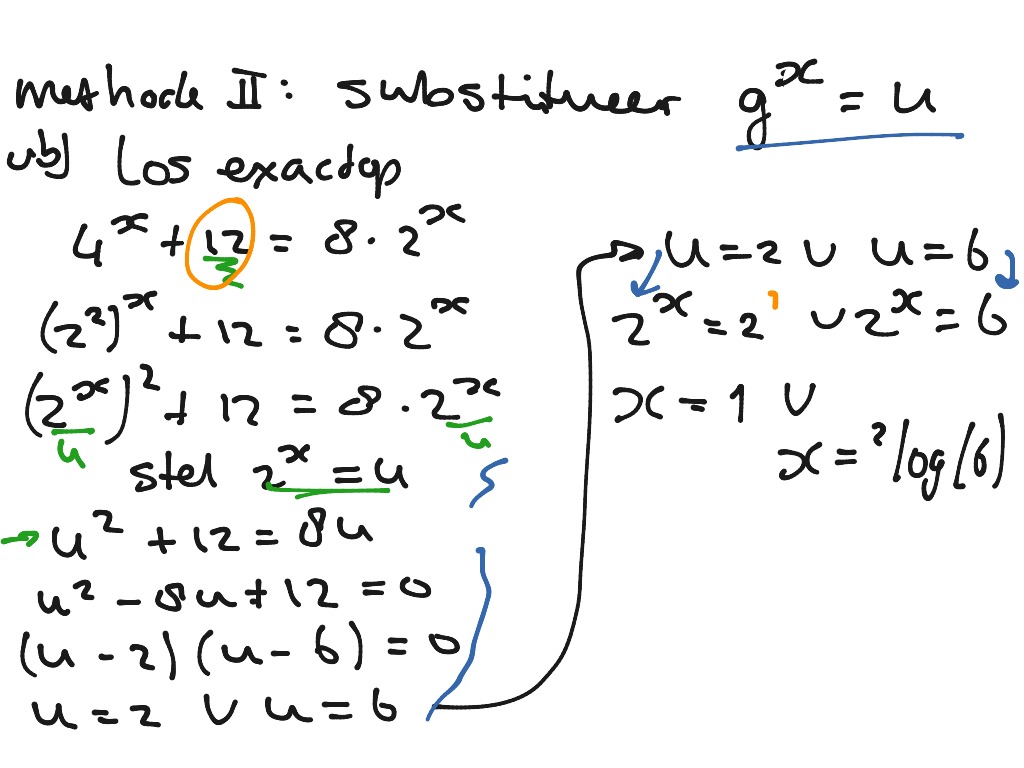 methode II: substitueer g^x = u
vbj Los exact op
4^x + 12 = 8 · 2^x
(2²)^x + 12 = 8 · 2^x
(2^x)² + 12 = 8 · 2^x
u u
stel 2^x = u
→ u² + 12 = 8u
u² - 8u + 12 = 0
(u - 2) (u - 6) = 0
u = 2 ∨ u = 6
u = 2 ∨ u = 6
2^x = 2^1 ∨ 2^x = 6
x = 1 ∨
x = ²log(6)